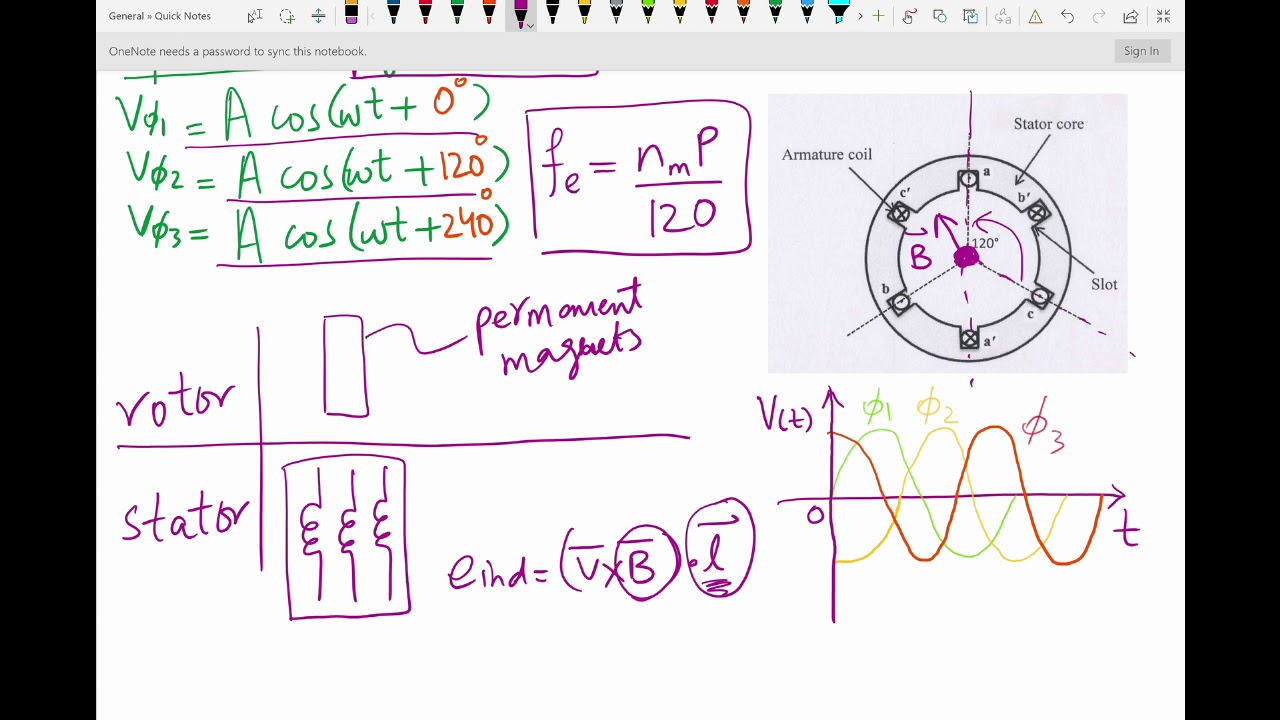 General » Quick Notes
OneNote needs a password to sync this notebook.
Sign In
Vϕ1 = A cos(ωt + 0°)
Vϕ2 = A cos(ωt + 120°)
Vϕ3 = A cos(ωt + 240°)
fe = nm P / 120
Stator core
Armature coil
a
b'
c'
120°
B
Slot
b
c
a'
permoment
magnets
rotor
stator
eind = (V × B) · l
V(t)
ϕ1 ϕ2 ϕ3
0
t